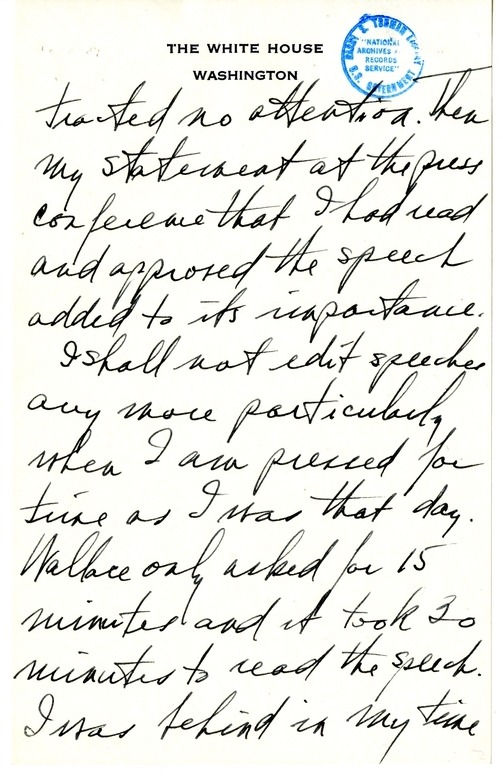 THE WHITE HOUSE
WASHINGTON
HARRY S. TRUMAN LIBRARY
"NATIONAL
ARCHIVES &
RECORDS
SERVICE"
U.S. GOVERNMENT
tracted no attention. Then
my statement at the press
conference that I had read
and approved the speech
added to its importance.
I shall not edit speeches
any more particularly
when I am pressed for
time as I was that day.
Wallace only asked for 15
minutes and it took 30
minutes to read the speech.
I was behind in my time